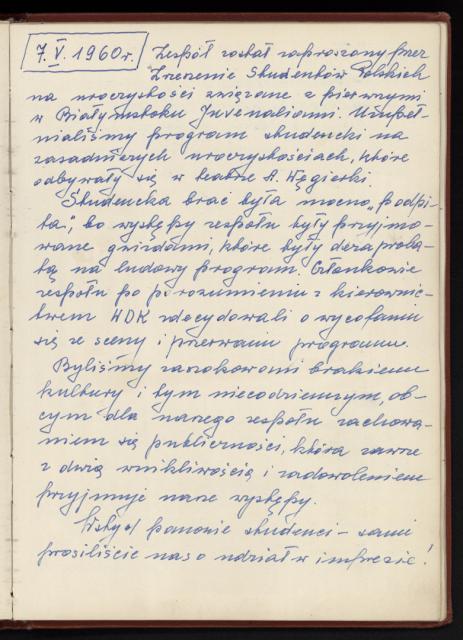 7. V. 1960 r. Zespół został zaproszony przez
Zrzeszenie Studentów Polskich
na uroczystości związane z pierwszymi
w Białymstoku Juvenaliami. Uzupeł-
nialiśmy program studencki na
zasadniczych uroczystościach, które
odbywały się w teatrze A. Węgierki.
Studencka brać była mocno "podpi-
ta", bo występy zespołu były przyjmo-
wane gwizdami, które były dezaproba-
tą na ludowy program. Członkowie
zespołu po porozumieniu z kierownic-
twem WDK zdecydowali o wycofaniu
się ze sceny i przerwaniu programu.
Byliśmy zaszokowani brakiem
kultury i tym niecodziennym, ob-
cym dla naszego zespołu zachowa-
niem się publiczności, która zawsze
z dużą wnikliwością i zadowoleniem
przyjmuje nasze występy.
Wstyd panowie studenci - sami
prosiliście nas o udział w imprezie!